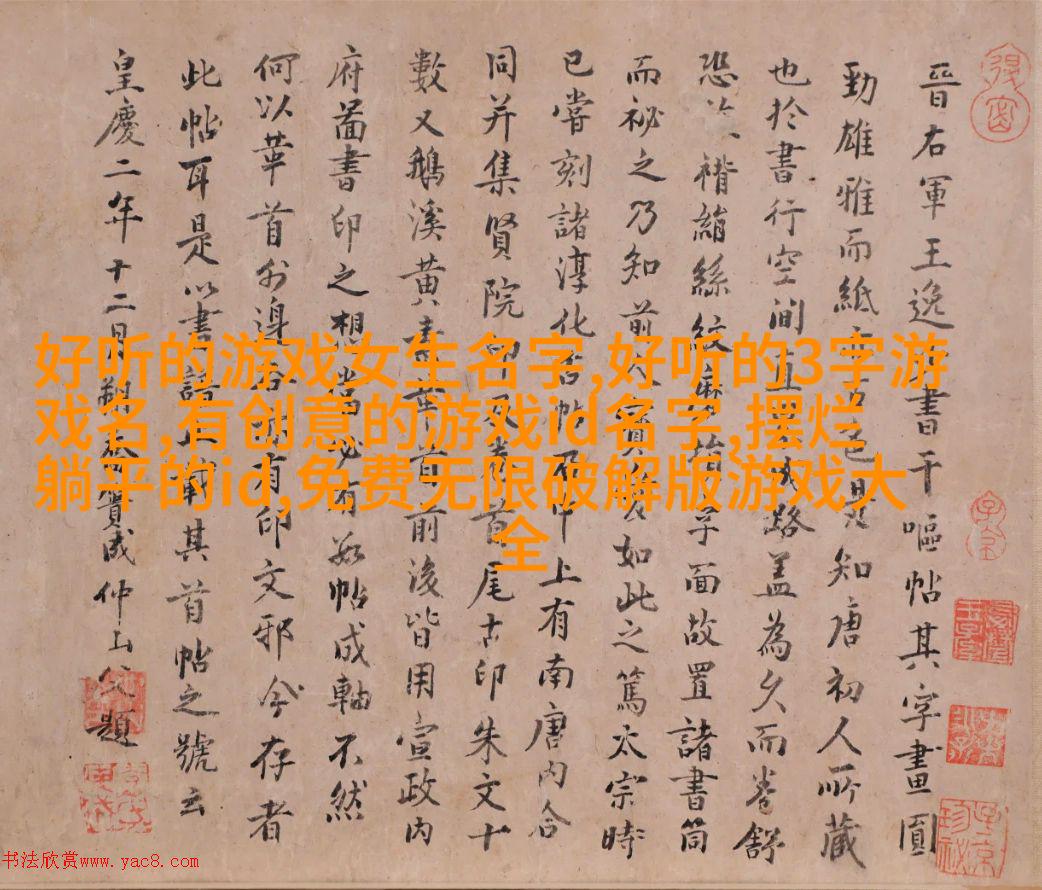 晉右軍王逸書干嘔帖其字畫圓
勁雄雅而紙亦古色是知唐初人所藏
也於書行空澗直界成路蓋為久而卷舒
恐褙縮絲紋字面故置諸書筒
而祕之乃知前人寶如此之篤太宗時
已嘗刻諸淳化帖中上有南唐內合
同并集賢院首尾古印朱文十
數又鵝溪黃素華首前後皆用宣政內
府圖書印之想當必有帖成軸不然
何以華首外邊有印文邪今存者
此帖耳是以書諸其首帖之號云
皇慶二年十二月朔賀成仲山父題
好听的游戏女生名字,好听的3字游
戏名,有创意的游戏id名字,摆烂
躺平的id,免费无限破解版游戏大
全
书法欣赏www.yac8.com